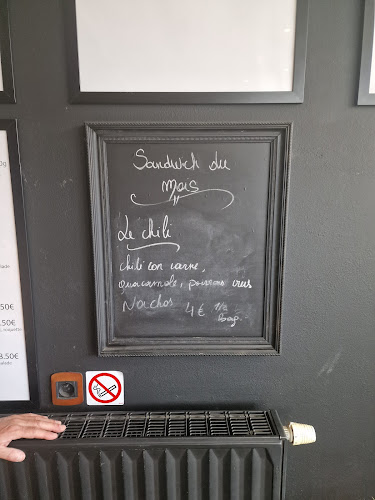 Sandwich du
Mois
Le chili
chili con carne,
Guacamole, poivrons crus
Nachos 4€ 1/2
baag.
.50€
.50€
8.50€